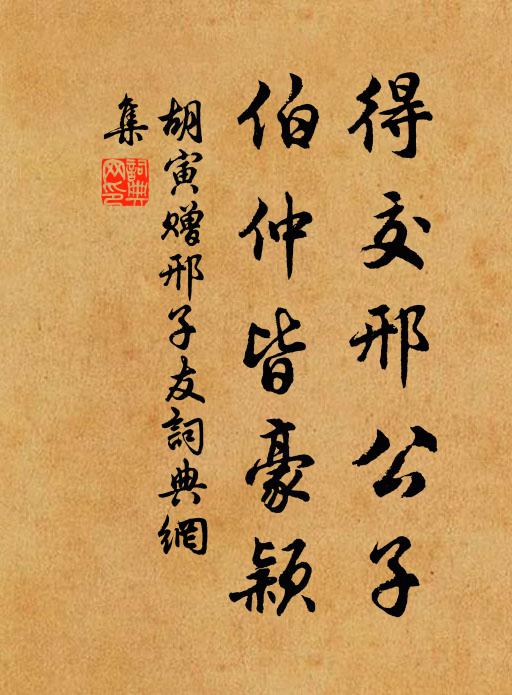 得交邢公子
伯仲皆豪颖
胡寅赠邢子友詞典網
集
詞典网印